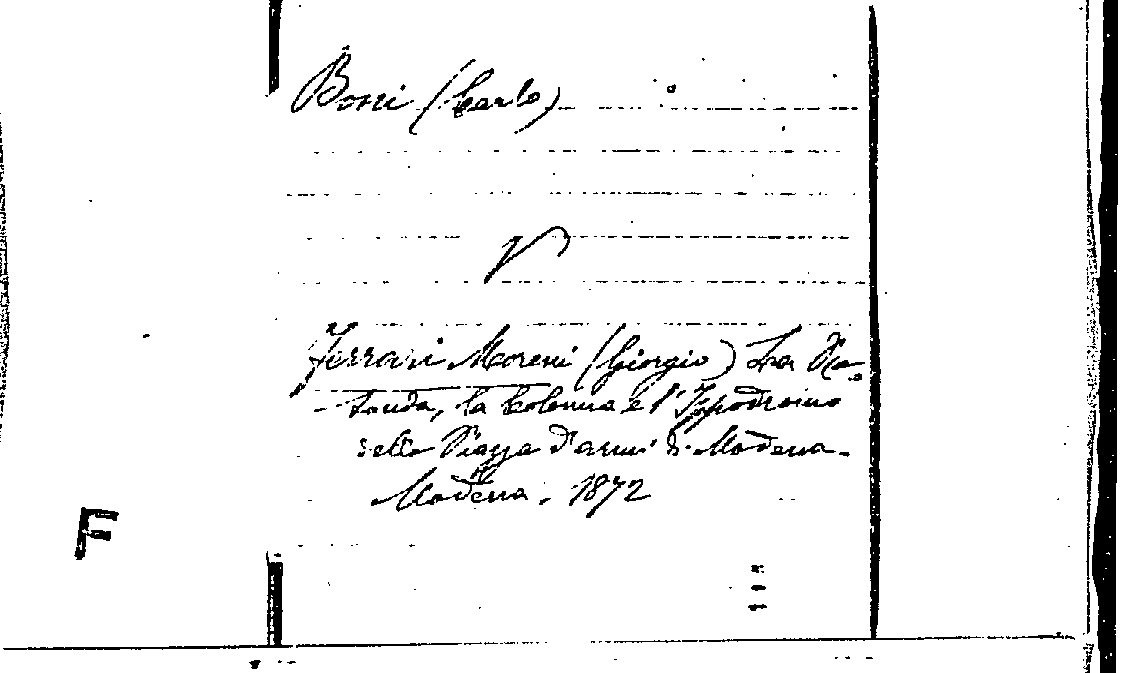 Boni (Carlo)
V
Ferrari Moreni (Giorgio) La Ro-
-tonda, la Colonna e l'Ippodromo
della Piazza d'armi di Modena.
Modena. 1872
F